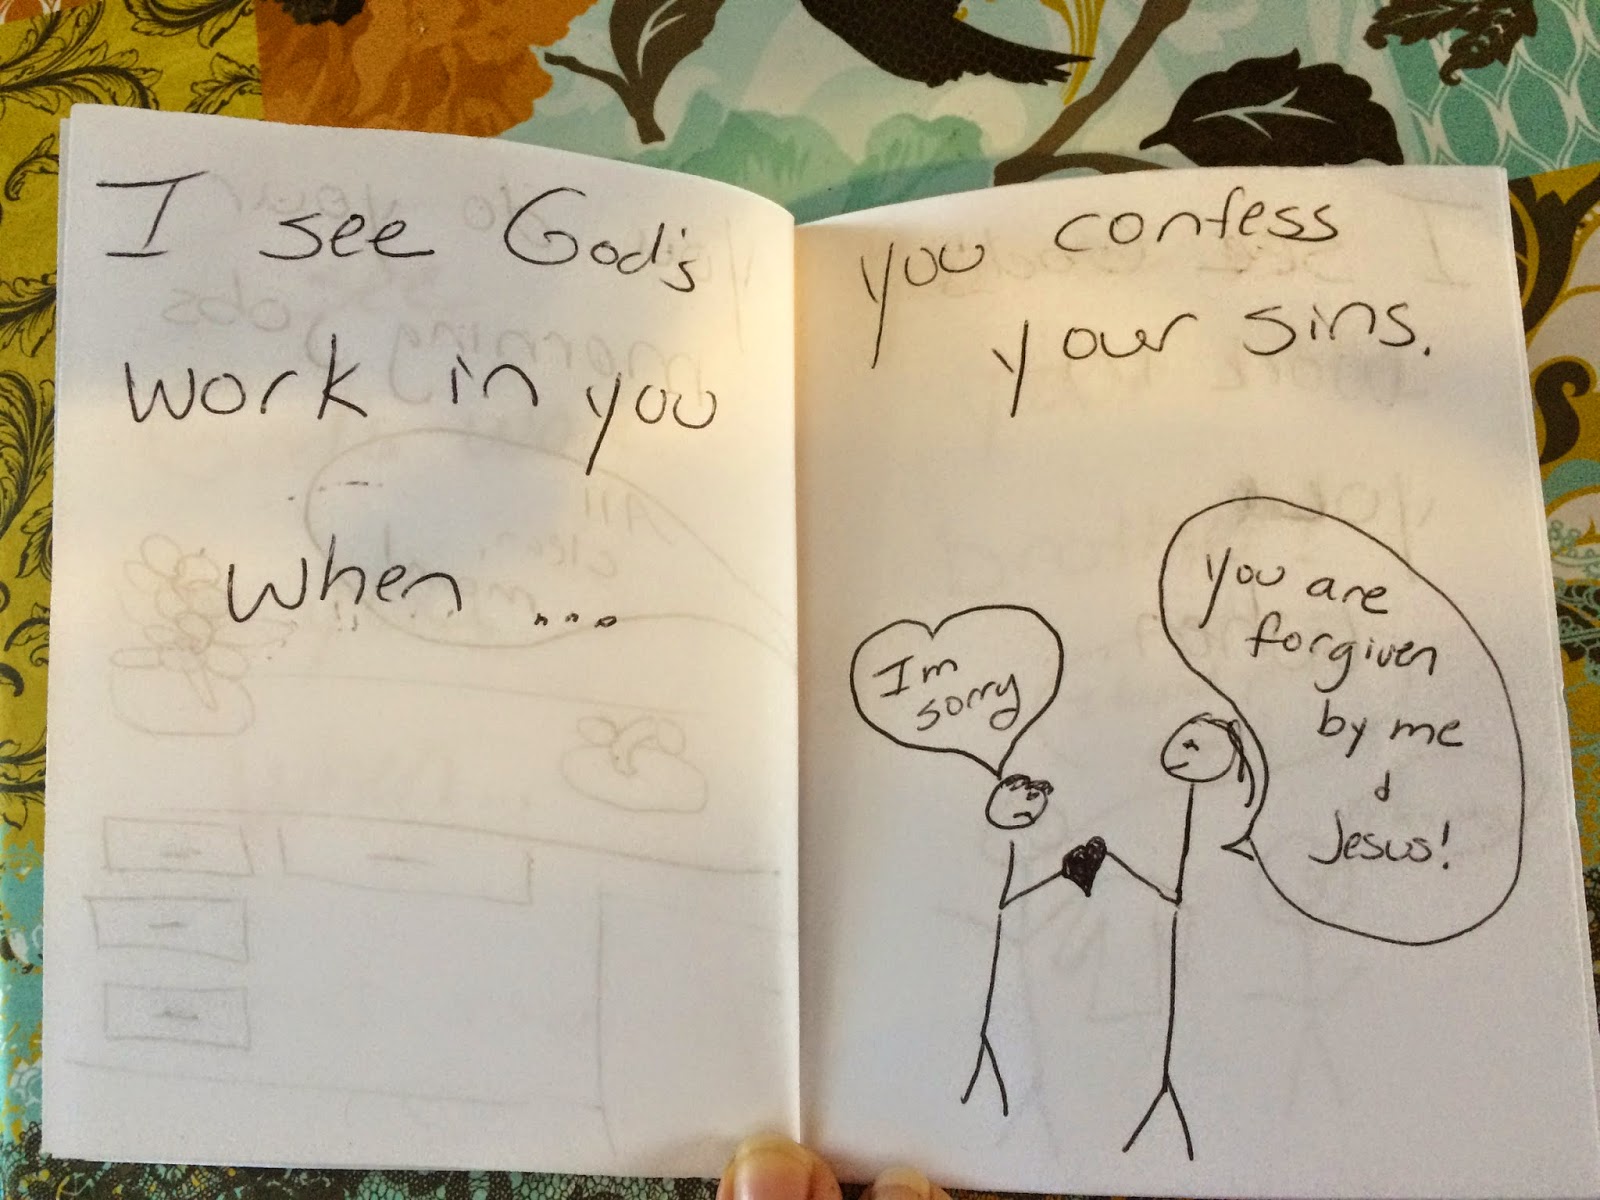 I see God's
work in you
when ...
you confess
your sins.
I'm
sorry
You are
forgiven
by me
&
Jesus!